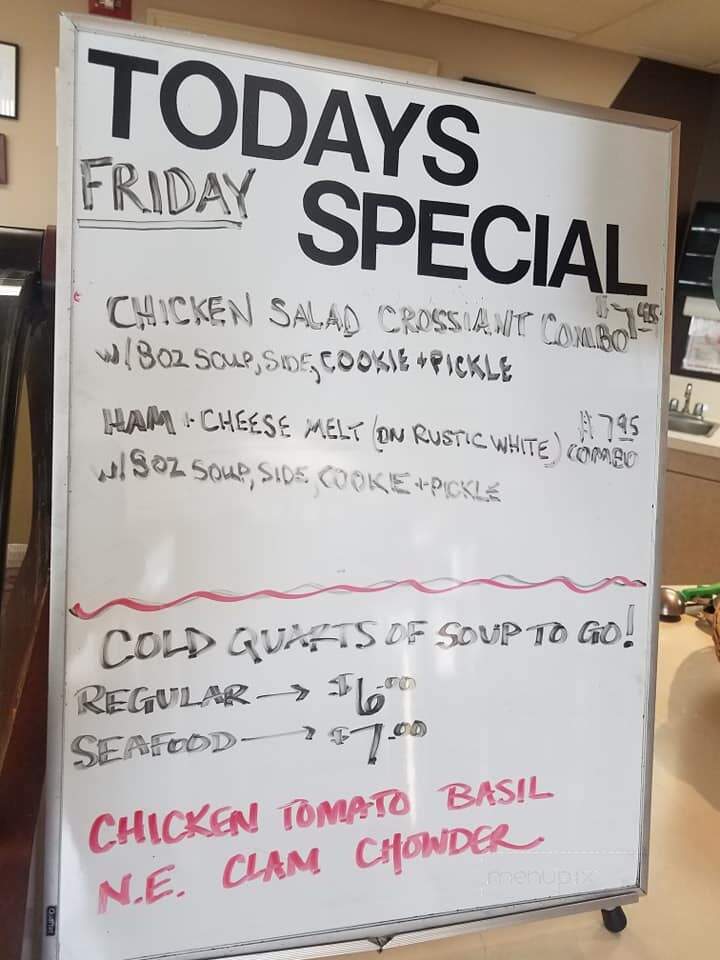 TODAYS
FRIDAY
SPECIAL
CHICKEN SALAD CROSSIANT COMBO
W/8OZ SOUP, SIDE, COOKIE + PICKLE
HAM + CHEESE MELT (ON RUSTIC WHITE) COMBO $7.95
W/8OZ SOUP, SIDE, COOKIE + PICKLE
COLD QUARTS OF SOUP TO GO!
REGULAR → $6.00
SEAFOOD → $7.00
CHICKEN TOMATO BASIL
N.E. CLAM CHOWDER
menupix